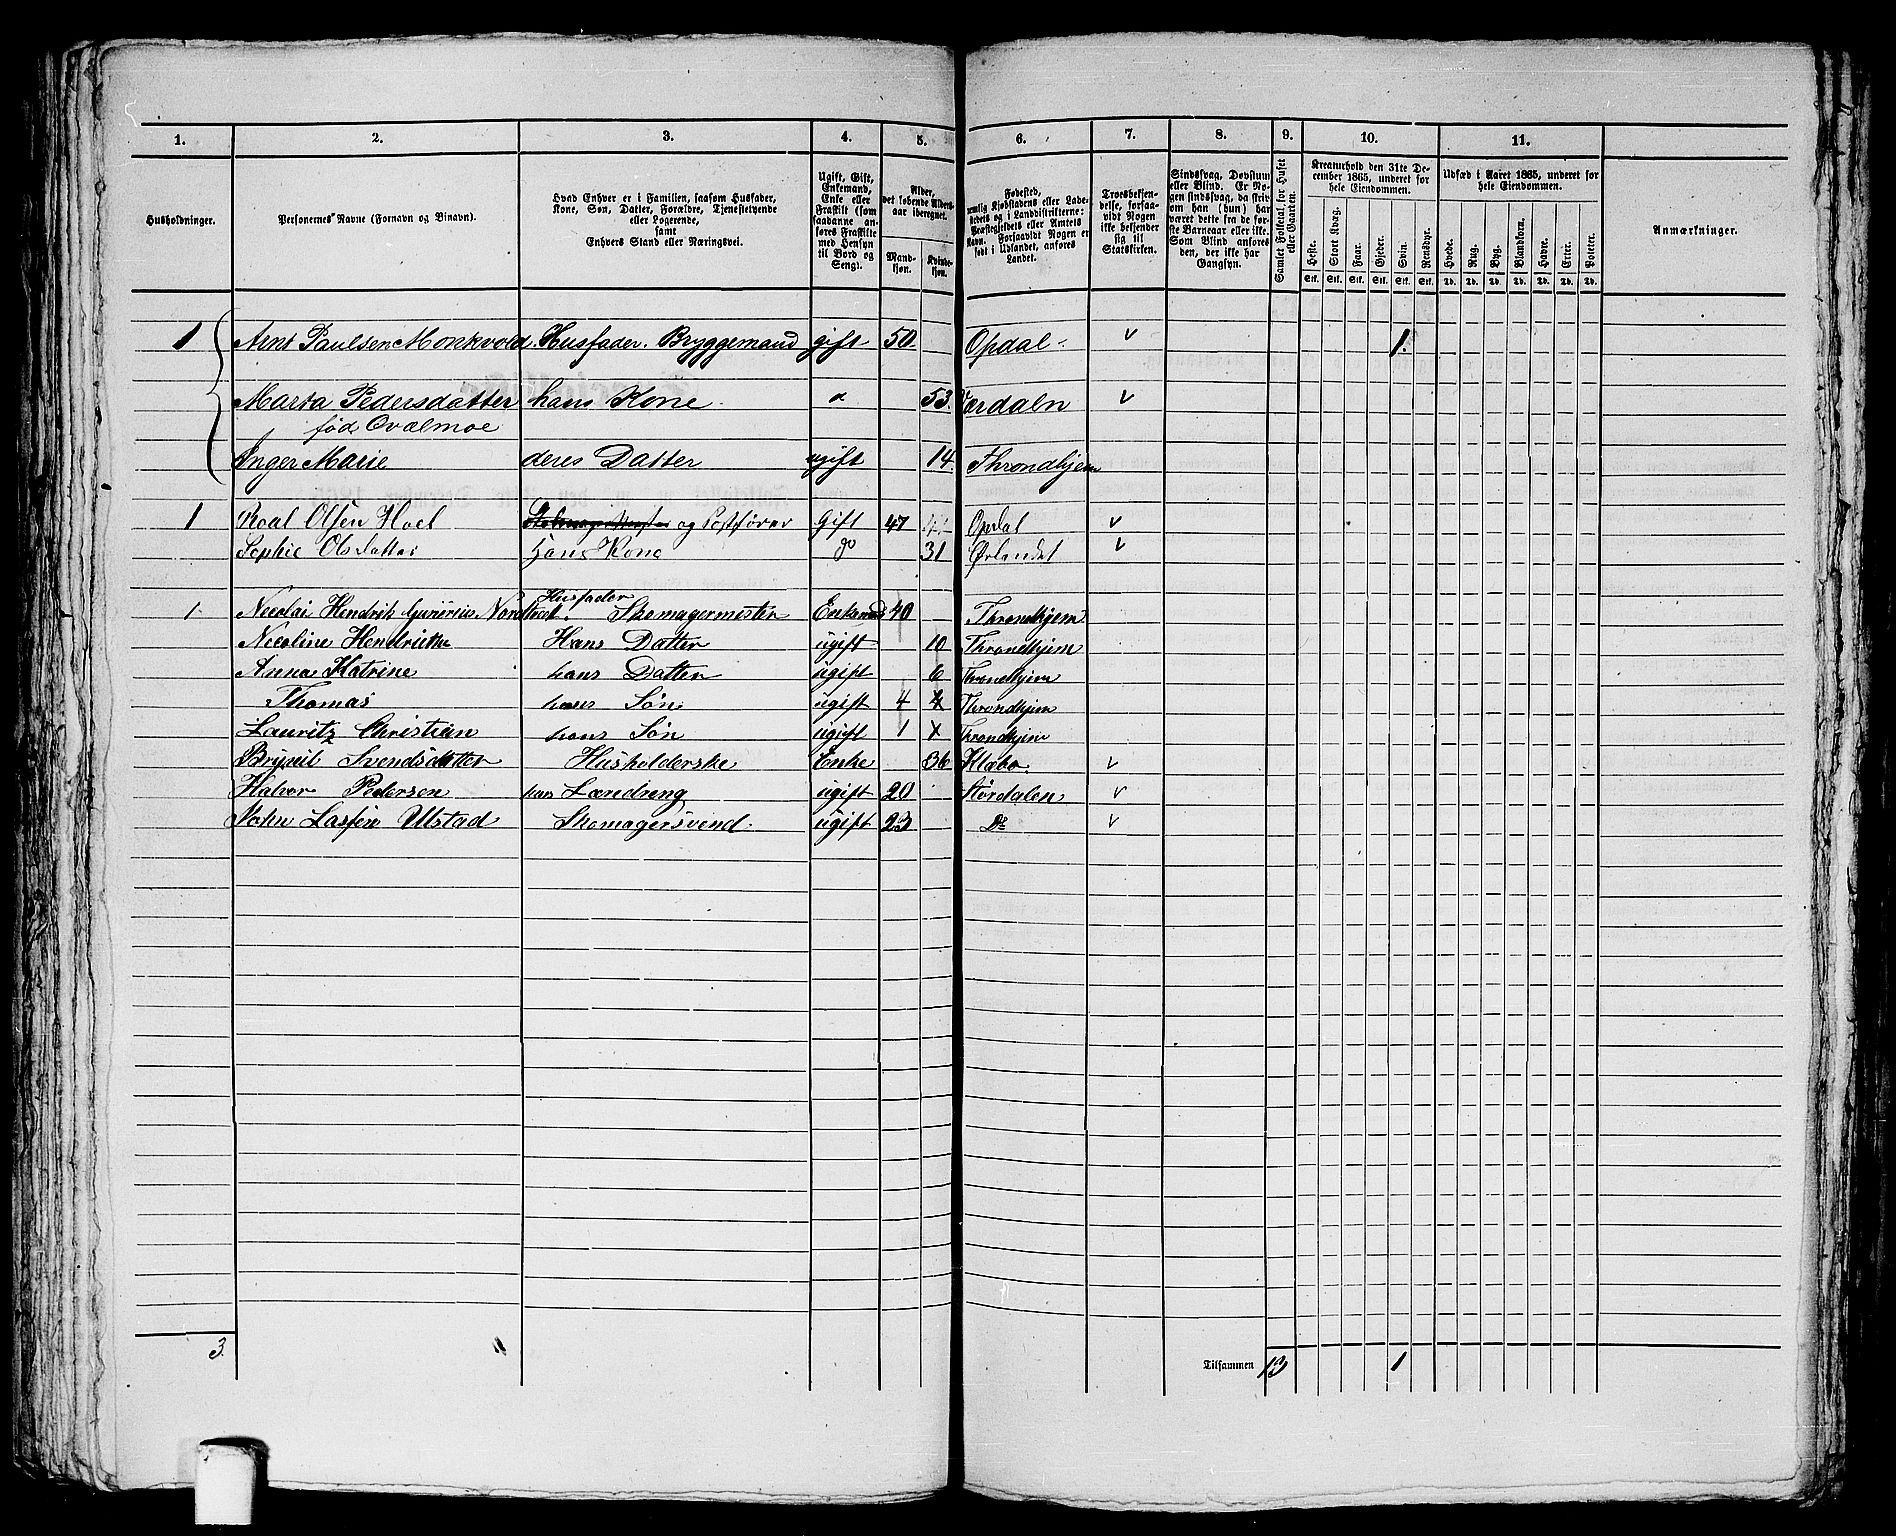 1. 2. 3. 4. 5. 6. 7. 8. 9. 10. 11.
Husholdninger.
Personernes Navne (Fornavn og Binavn).
Hvad Enhver er i Familien, saasom Husfader,
Kone, Søn, Datter, Forældre, Tjenestetyende
eller Logerende,
samt
Enhvers Stand eller Næringsvei.
Ugift, Gift,
Enkemand,
Enke eller
Fraskilt (som
saadanne an-
føres Fraskilte
med Hensyn
til Bord og
Seng).
Alder,
det løbende Alders-
aar iberegnet.
Mand-
kjøn.
Kvinde-
kjøn.
Fødested,
nemlig Kjøbstadens eller Lade-
stedets og i Landdistrikterne:
Præstegjeldets eller Amtets
Navn. Forsaavidt Nogen er
født i Udlandet, anføres
Landet.
Troesbekjen-
delse, forsaa-
vidt Nogen
ikke bekjender
sig til
Statskirken.
Sindssvag, Døvstum
eller Blind. Er No-
gen sindssvag, da skriv
om han (hun) har
været dette fra de før-
ste Barneaar eller ikke.
Som Blind anføres
den, der ikke har
Gangsyn.
Samlet Folketal, for Huset
eller Gaarden.
Kreaturhold den 31te De-
cember 1865, underet for
hele Eiendommen.
Heste. Stort Kvæg. Faar. Gjeder. Svin. Rensdyr.
Stk. Stk. Stk. Stk. Stk. Stk.
Udsæd i Aaret 1865, underet for
hele Eiendommen.
Hvede. Rug. Byg. Blandkorn. Havre. Erter. Poteter.
Td. Td. Td. Td. Td. Td. Td.
Anmærkninger.
1 Arnt Paulsen Monkvold. Husfader. Bryggemand gift 50 Opdal. 1.
Marta Pedersdatter hans Kone. 53. Værdaln
fød Qvælmoe
Inger Marie deres Datter ugift 14. Throndhjem
1 Roal Olsen Hoel og Postfører Gift 47 Opdal
Sophie Olsdatter Hans Kone do 31 Ørlandet
Husfader
1 Nicolai Hendrik Skomagermester Enkemd 40 Throndhjem
Nicoline Hendrikke Hans Datter ugift 10 Throndhjem
Anna Katrine hans Datter ugift 6 Throndhjem
Thomas hans Søn ugift 4 Throndhjem
Lauritz Christian hans Søn ugift 1 Throndhjem
Svendsdatter Husholderske Enke 36 Klæbo
Halvor Pedersen hans Lændreng ugift 20 Størdalen
John Lassen Ulstad Skomagersvend. ugift 23 Do
3. Tilsammen 13 1